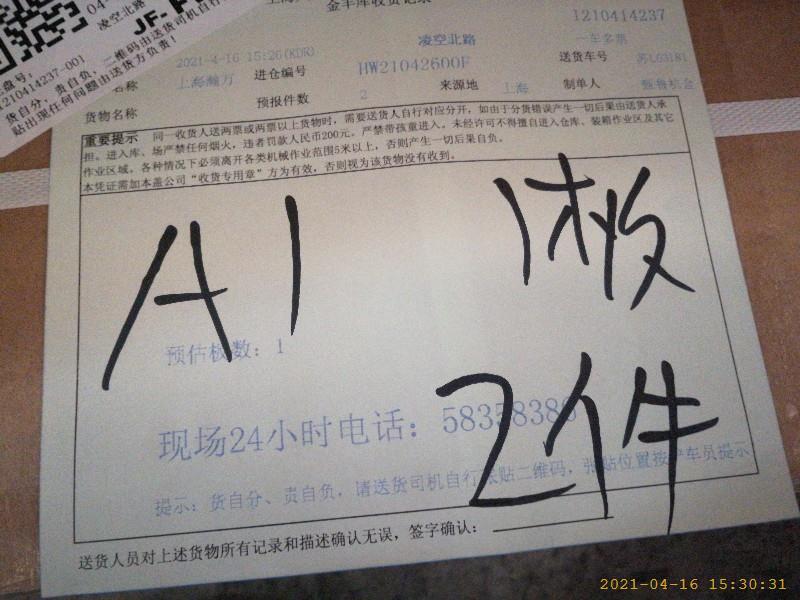 凌空北路
JF-
1210414237-001
货自分、责自负，二维码由送货司机自行
贴出现任何问题由送货方负责！
金羊库收货记录
1210414237
凌空北路 一车多票
2021-04-16 15:26(KDR)
进仓编号 HW21042600F 送货车号 苏L03181
名称 上海瀚万
预报件数 2 来源地 上海 制单人
货物名称
重要提示 同一收货人送两票或两票以上货物时，需要送货人自行对应分开，如由于分货错误产生一切后果由送货人承
担。进入库、场严禁任何烟火，违者罚款人民币200元。严禁带孩童进入。未经许可不得擅自进入仓库、装箱作业区及其它
作业区域。各种情况下必须离开各类机械作业范围5米以上，否则产生一切后果自负。
本凭证需加本盖公司“收货专用章”方为有效，否则视为该货物没有收到。
A1 1板
预估板数：1
2件
现场24小时电话：58358386
提示：货自分、责自负，请送货司机自行张贴二维码，张贴位置按护车员提示
送货人员对上述货物所有记录和描述确认无误，签字确认：
2021-04-16 15:30:31